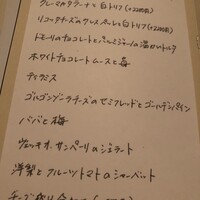 クレーマカタラーナと白トリフ(+2200円)
リコッタチーズのクレスペッレと白トリフ(+2200円)
トモーリのチョコレートとパルミジャーノの温かいトルタ
ホワイトチョコレートムースと苺
ティラミス
ゴルゴンゾーラチーズのセミフレッドとゴールデンパイン
ババと梅
ヴェッキオ.サンペーリのジェラート
洋梨とフルーツトマトのシャーベット
チーズ盛り合わせ